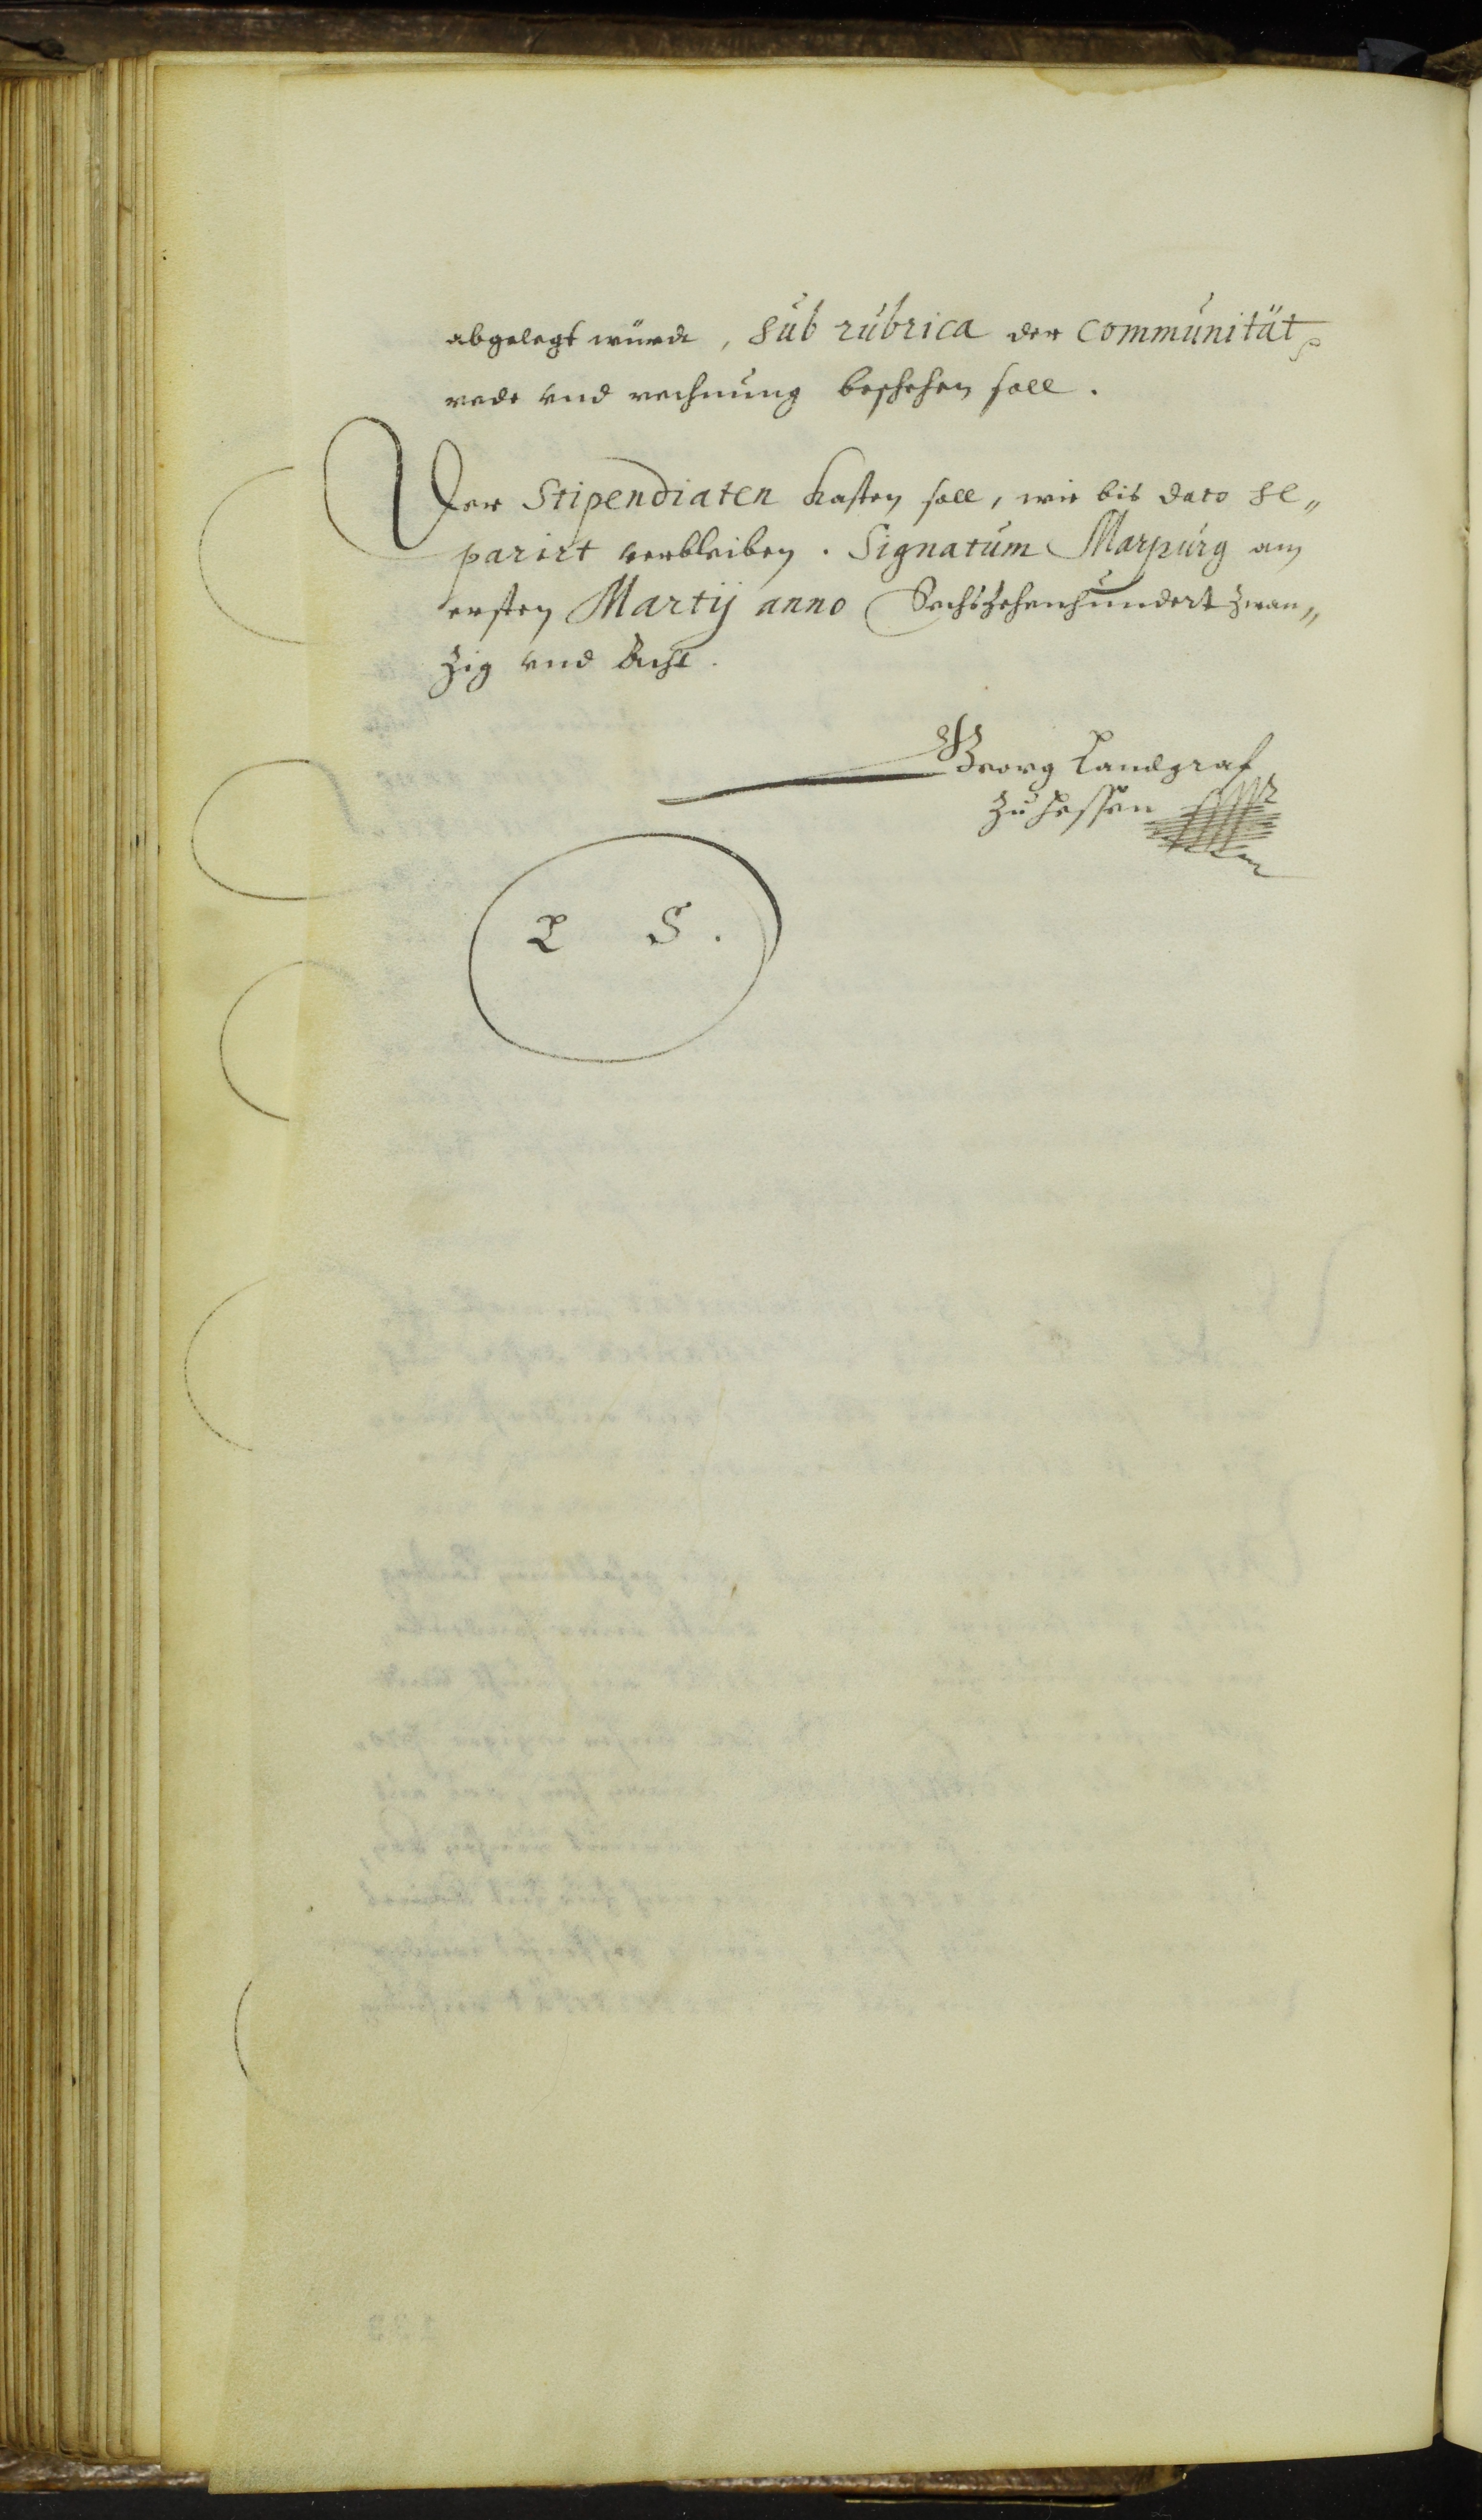 abgelegt würde, sub rubrica der Communität
rede vnd rechnung beschehen soll.
Der Stipendiaten kasten soll, wie bis dato se„
parirt verbleiben. Signatum Marpurg am
ersten Martij anno Sechszehenhundert zwan„
zig vnd Acht.
Georg Landgraf
zu Hessen
L S.